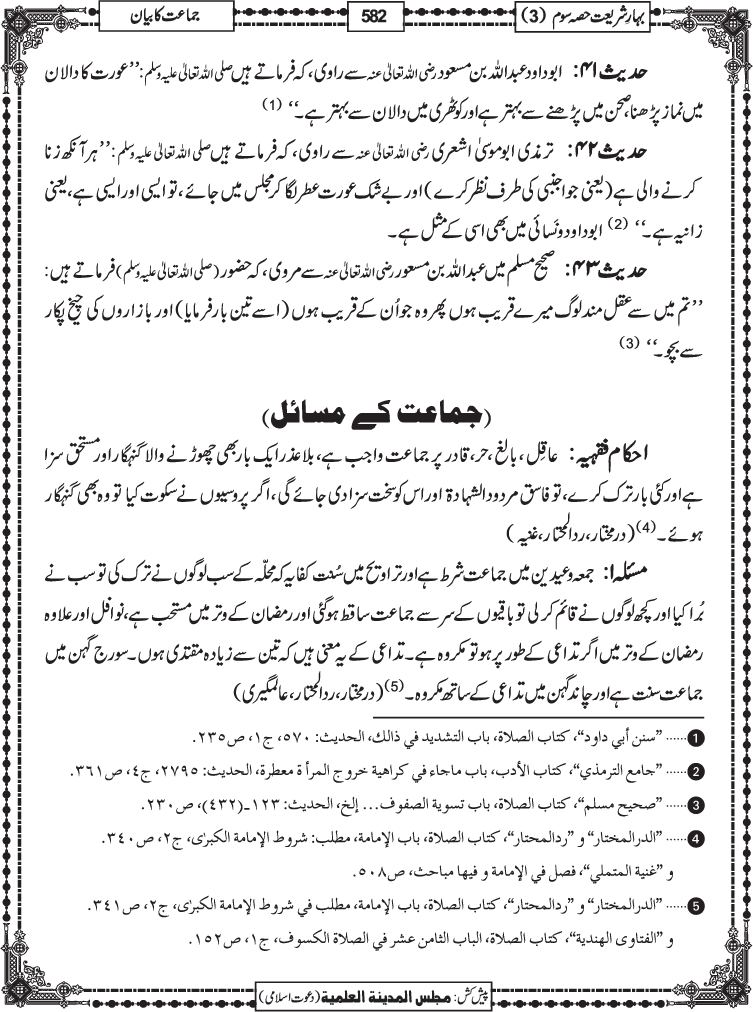 بہارِشریعت حصہ سوم (3)
582
جماعت کا بیان
حدیث ۴۱: ابو داود عبداللہ بن مسعود رضی اللہ تعالیٰ عنہ سے راوی، کہ فرماتے ہیں صلی اللہ تعالیٰ علیہ وسلم: ’’عورت کا دالان
میں نماز پڑھنا، صحن میں پڑھنے سے بہتر ہے اور کوٹھری میں دالان سے بہتر ہے۔‘‘ (1)
حدیث ۴۲: ترمذی ابو موسیٰ اشعری رضی اللہ تعالیٰ عنہ سے راوی، کہ فرماتے ہیں صلی اللہ تعالیٰ علیہ وسلم: ’’ہر آنکھ زنا
کرنے والی ہے (یعنی جو اجنبی کی طرف نظر کرے) اور بے شک عورت عطر لگا کر مجلس میں جائے، تو ایسی اور ایسی ہے، یعنی
زانیہ ہے۔‘‘ (2) ابو داود و نَسائی میں بھی اسی کے مثل ہے۔
حدیث ۴۳: صحیح مسلم میں عبداللہ بن مسعور رضی اللہ تعالیٰ عنہ سے مروی، کہ حضور (صلی اللہ تعالیٰ علیہ وسلم) فرماتے ہیں:
’’تم میں سے عقل مند لوگ میرے قریب ہوں پھر وہ جو اُن کے قریب ہوں (اسے تین بار فرمایا) اور بازاروں کی چیخ پکار
سے بچو۔‘‘ (3)
(جماعت کے مسائل)
احکام فقہیہ: عاقِل، بالغ، حر، قادر پر جماعت واجب ہے، بلاعذر ایک بار بھی چھوڑنے والا گنہگار اور مستحق سزا
ہے اور کئی بار ترک کرے، تو فاسق مردود الشہادۃ اور اس کو سخت سزا دی جائے گی، اگر پروسیوں نے سکوت کیا تو وہ بھی گنہگار
ہوئے۔(4) (درمختار، ردالمحتار، غنیہ)
مسئلہ ۱: جمعہ و عیدین میں جماعت شرط ہے اور تراویح میں سُنت کفایہ کہ محلّہ کے سب لوگوں نے ترک کی تو سب نے
بُرا کیا اور کچھ لوگوں نے قائم کر لی تو باقیوں کے سر سے جماعت ساقط ہوگئی اور رمضان کے وتر میں مستحب ہے، نوافل اور علاوہ
رمضان کے وتر میں اگر تداعی کے طور پر ہو تو مکروہ ہے۔ تداعی کے یہ معنی ہیں کہ تین سے زیادہ مقتدی ہوں۔ سورج گہن میں
جماعت سنت ہے اور چاند گہن میں تداعی کے ساتھ مکروہ۔(5) (درمختار، ردالمحتار، عالمگیری)
1 ...... ”سنن أبي داود“، کتاب الصلاۃ، باب التشدید في ذالك، الحدیث: ٥٧٠، ج١، ص٢٣٥.
2 ...... ”جامع الترمذي“، کتاب الأدب، باب ماجاء في کراھیۃ خروج المرأۃ معطرۃ، الحدیث: ٢٧٩٥، ج٤، ص٣٦١.
3 ...... ”صحیح مسلم“، کتاب الصلاۃ، باب تسویۃ الصفوف... إلخ، الحدیث: ١٢٣ـ(٤٣٢)، ص٢٣٠.
4 ...... ”الدرالمختار“ و ”ردالمحتار“، کتاب الصلاۃ، باب الإمامۃ، مطلب: شروط الإمامۃ الکبریٰ، ج٢، ص٣٤٠.
و ”غنیۃ المتملي“، فصل في الإمامۃ و فیھا مباحث، ص٥٠٨.
5 ...... ”الدرالمختار“ و ”ردالمحتار“، کتاب الصلاۃ، باب الإمامۃ، مطلب في شروط الإمامۃ الکبریٰ، ج٢، ص٣٤١.
و ”الفتاوی الھندیۃ“، کتاب الصلاۃ، الباب الثامن عشر في الصلاۃ الکسوف، ج١، ص١٥٢.
پیش کش: مجلس المدینة العلمیة (دعوت اسلامی)